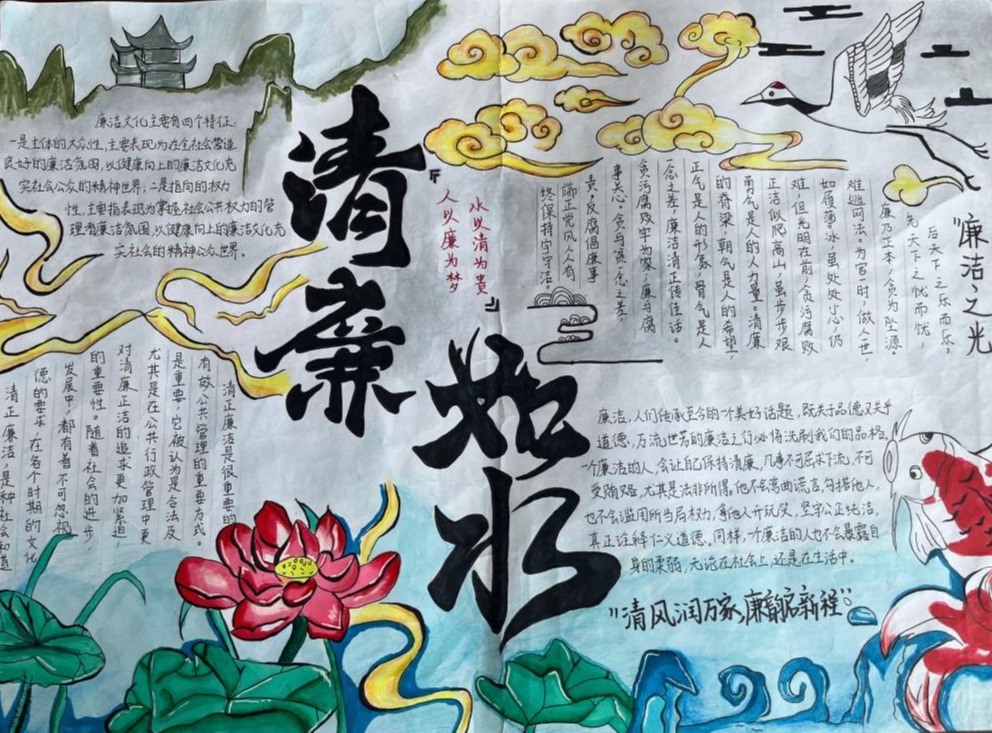 廉洁文化主要有四个特征:
一是主体的大众性,主要表现为在全社会营造
良好的廉洁氛围,以健康向上的廉洁文化充
实社会公众的精神世界;二是指向的权力
性,主要指表现为掌握社会公共权力的管
理者廉洁氛围,以健康向上的廉洁文化充
实社会的精神公众世界.
清廉
如水
『水以清为贵
人以廉为梦』
"廉洁、之光
后天下之乐而乐,
先天下之忧而忧,
廉乃正本,贪为坠源.
难逃司法。为官一时,做人一世.
如履薄冰虽处处小心,仍
难,但光明在前,贪污腐败
正洁似爬高山,虽步步艰
勇气是人的人力量。清廉
的脊梁,朝气是人的希望,
正气是人的形象,骨气是人
念之差,廉洁清正传佳话。
贪污腐败牢为家,廉与腐
事关心。贪与简一念之差,
责,反腐倡廉事
端正党风人人有
终保持守清.
清正廉洁是很重要的
有效公共管理的重要方式。
是重要,它被认为是合法及
尤其是在公共行政管理中更
对清廉正洁的追求更加紧迫,
的重要性。随着社会的进步,
发展中,都有着不可忽视
德的要求,在各个时期的文化
清正廉洁,是种社会和道
廉洁,人们传承至今的一个美好话题,既关于品德又关乎
道德,万流世芳的廉洁之行必将洗刷我们的品格.
一个廉洁的人,会让自己保持清廉,凡事不可屈求下流,不可
受贿赂,尤其是法非所得,他不会高曲谎言,勾搭他人,
也不会滥用所当局权力,拿他人开玩笑,坚守公正纯洁,
真正诠释仁义道德。同样,一个廉洁的人也不会暴露自
身的柔弱,无论在社会上,还是在生活中.
"清风润万家,廉韵启新程"。